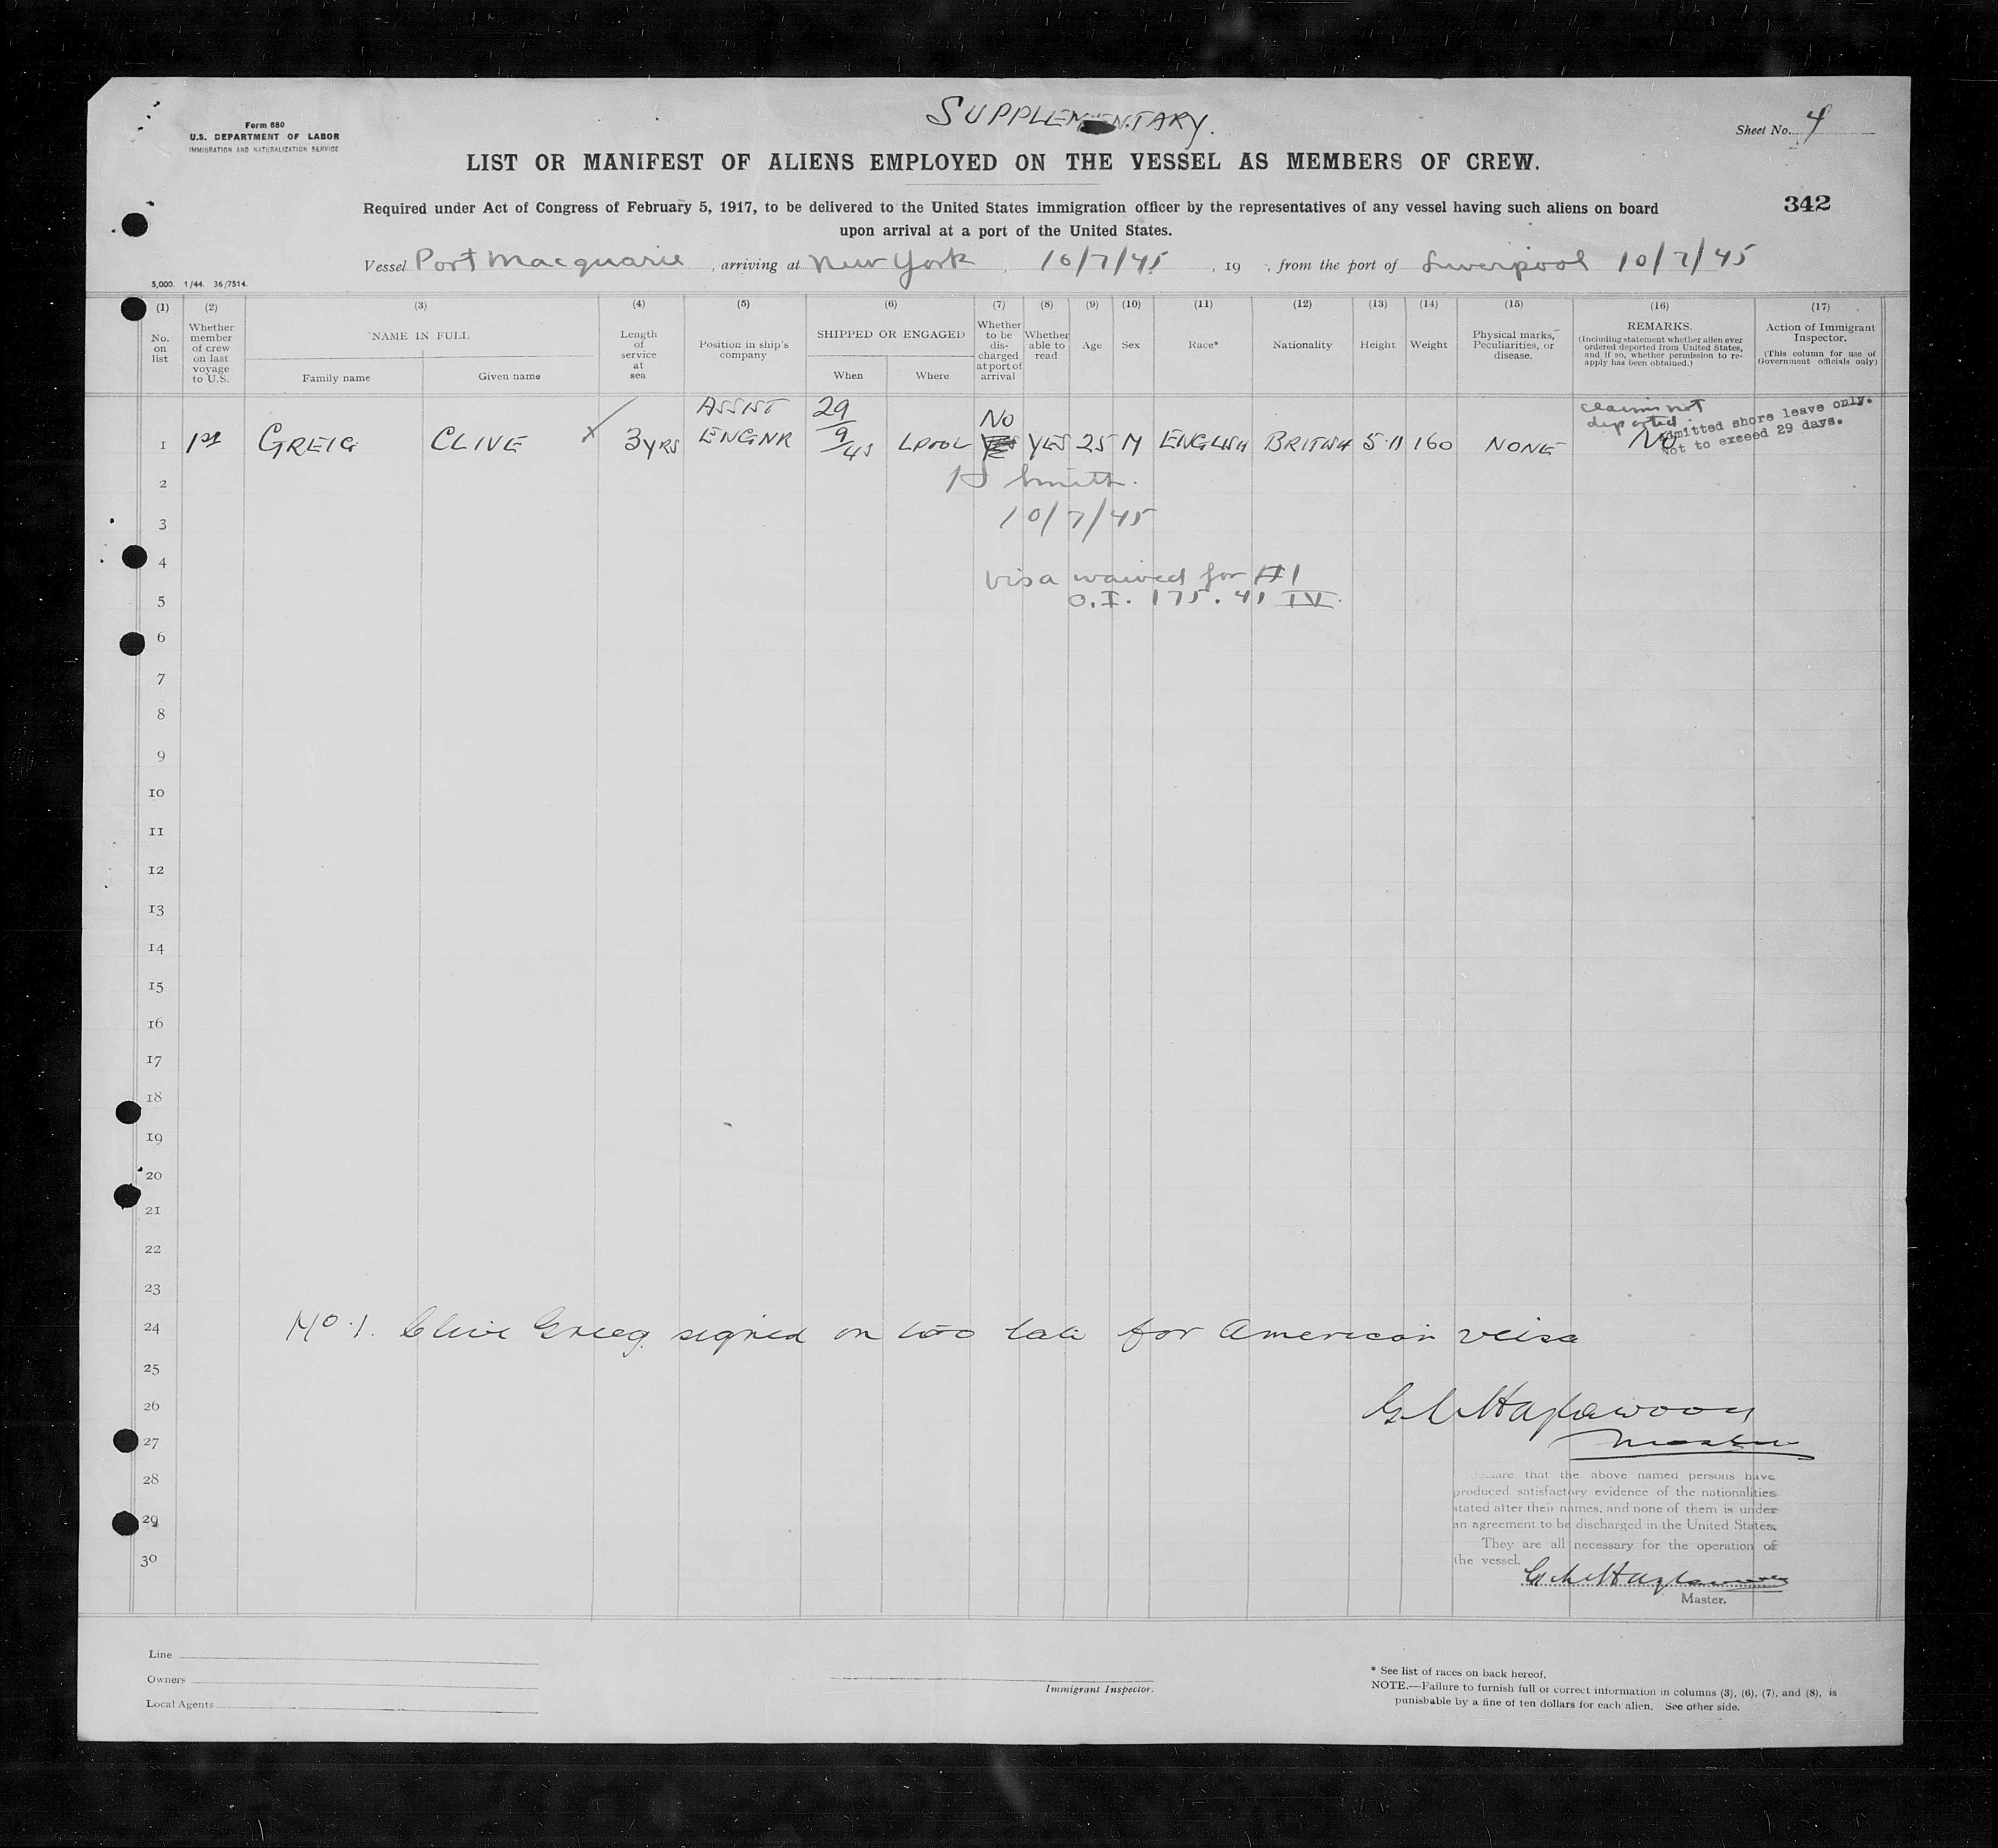 SUPPLEMENTARY.
Form 680
U.S. DEPARTMENT OF LABOR
IMMIGRATION AND NATURALIZATION SERVICE
Sheet No. 4
LIST OR MANIFEST OF ALIENS EMPLOYED ON THE VESSEL AS MEMBERS OF CREW.
342
Required under Act of Congress of February 5, 1917, to be delivered to the United States immigration officer by the representatives of any vessel having such aliens on board
upon arrival at a port of the United States.
Vessel Port Macquarie, arriving at New York, 10/7/45, 19 , from the port of Liverpool 10/7/45
5,000. 1/44. 36/7514.
(1) (2) (3) (4) (5) (6) (7) (8) (9) (10) (11) (12) (13) (14) (15) (16) (17)
No. on list
Whether member of crew on last voyage to U.S.
NAME IN FULL
Family name
Given name
Length of service at sea
Position in ship's company
SHIPPED OR ENGAGED
When
Where
Whether to be discharged at port of arrival
Whether able to read
Age
Sex
Race*
Nationality
Height
Weight
Physical marks, Peculiarities, or disease.
REMARKS.
(Including statement whether alien ever ordered deported from United States, and if so, whether permission to reapply has been obtained.)
Action of Immigrant Inspector.
(This column for use of Government officials only)
1 1st GREIG CLIVE X 3 YRS ASSIST ENGNR 29/9/45 LPOOL No YES 25 M ENGLISH BRITISH 5·11 160 NONE NO
claims not
deported
Admitted shore leave only.
Not to exceed 29 days.
2
H Smith.
3
10/7/45
4
visa waived for #1
5
O.I. 175.41 IV.
6
7
8
9
10
11
12
13
14
15
16
17
18
19
20
21
22
23
24
No.1. Clive Greeg signed on too late for American veisa
25
26
27
Master
28
declare that the above named persons have
produced satisfactory evidence of the nationalities
stated after their names, and none of them is under
29
an agreement to be discharged in the United States.
They are all necessary for the operation of
30
the vessel.
Master.
Line
Owners
Local Agents
Immigrant Inspector.
* See list of races on back hereof.
NOTE.—Failure to furnish full or correct information in columns (3), (6), (7), and (8), is
punishable by a fine of ten dollars for each alien. See other side.